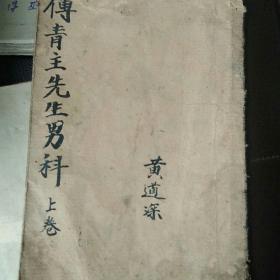 傅青主先生男科
上卷
黄道深